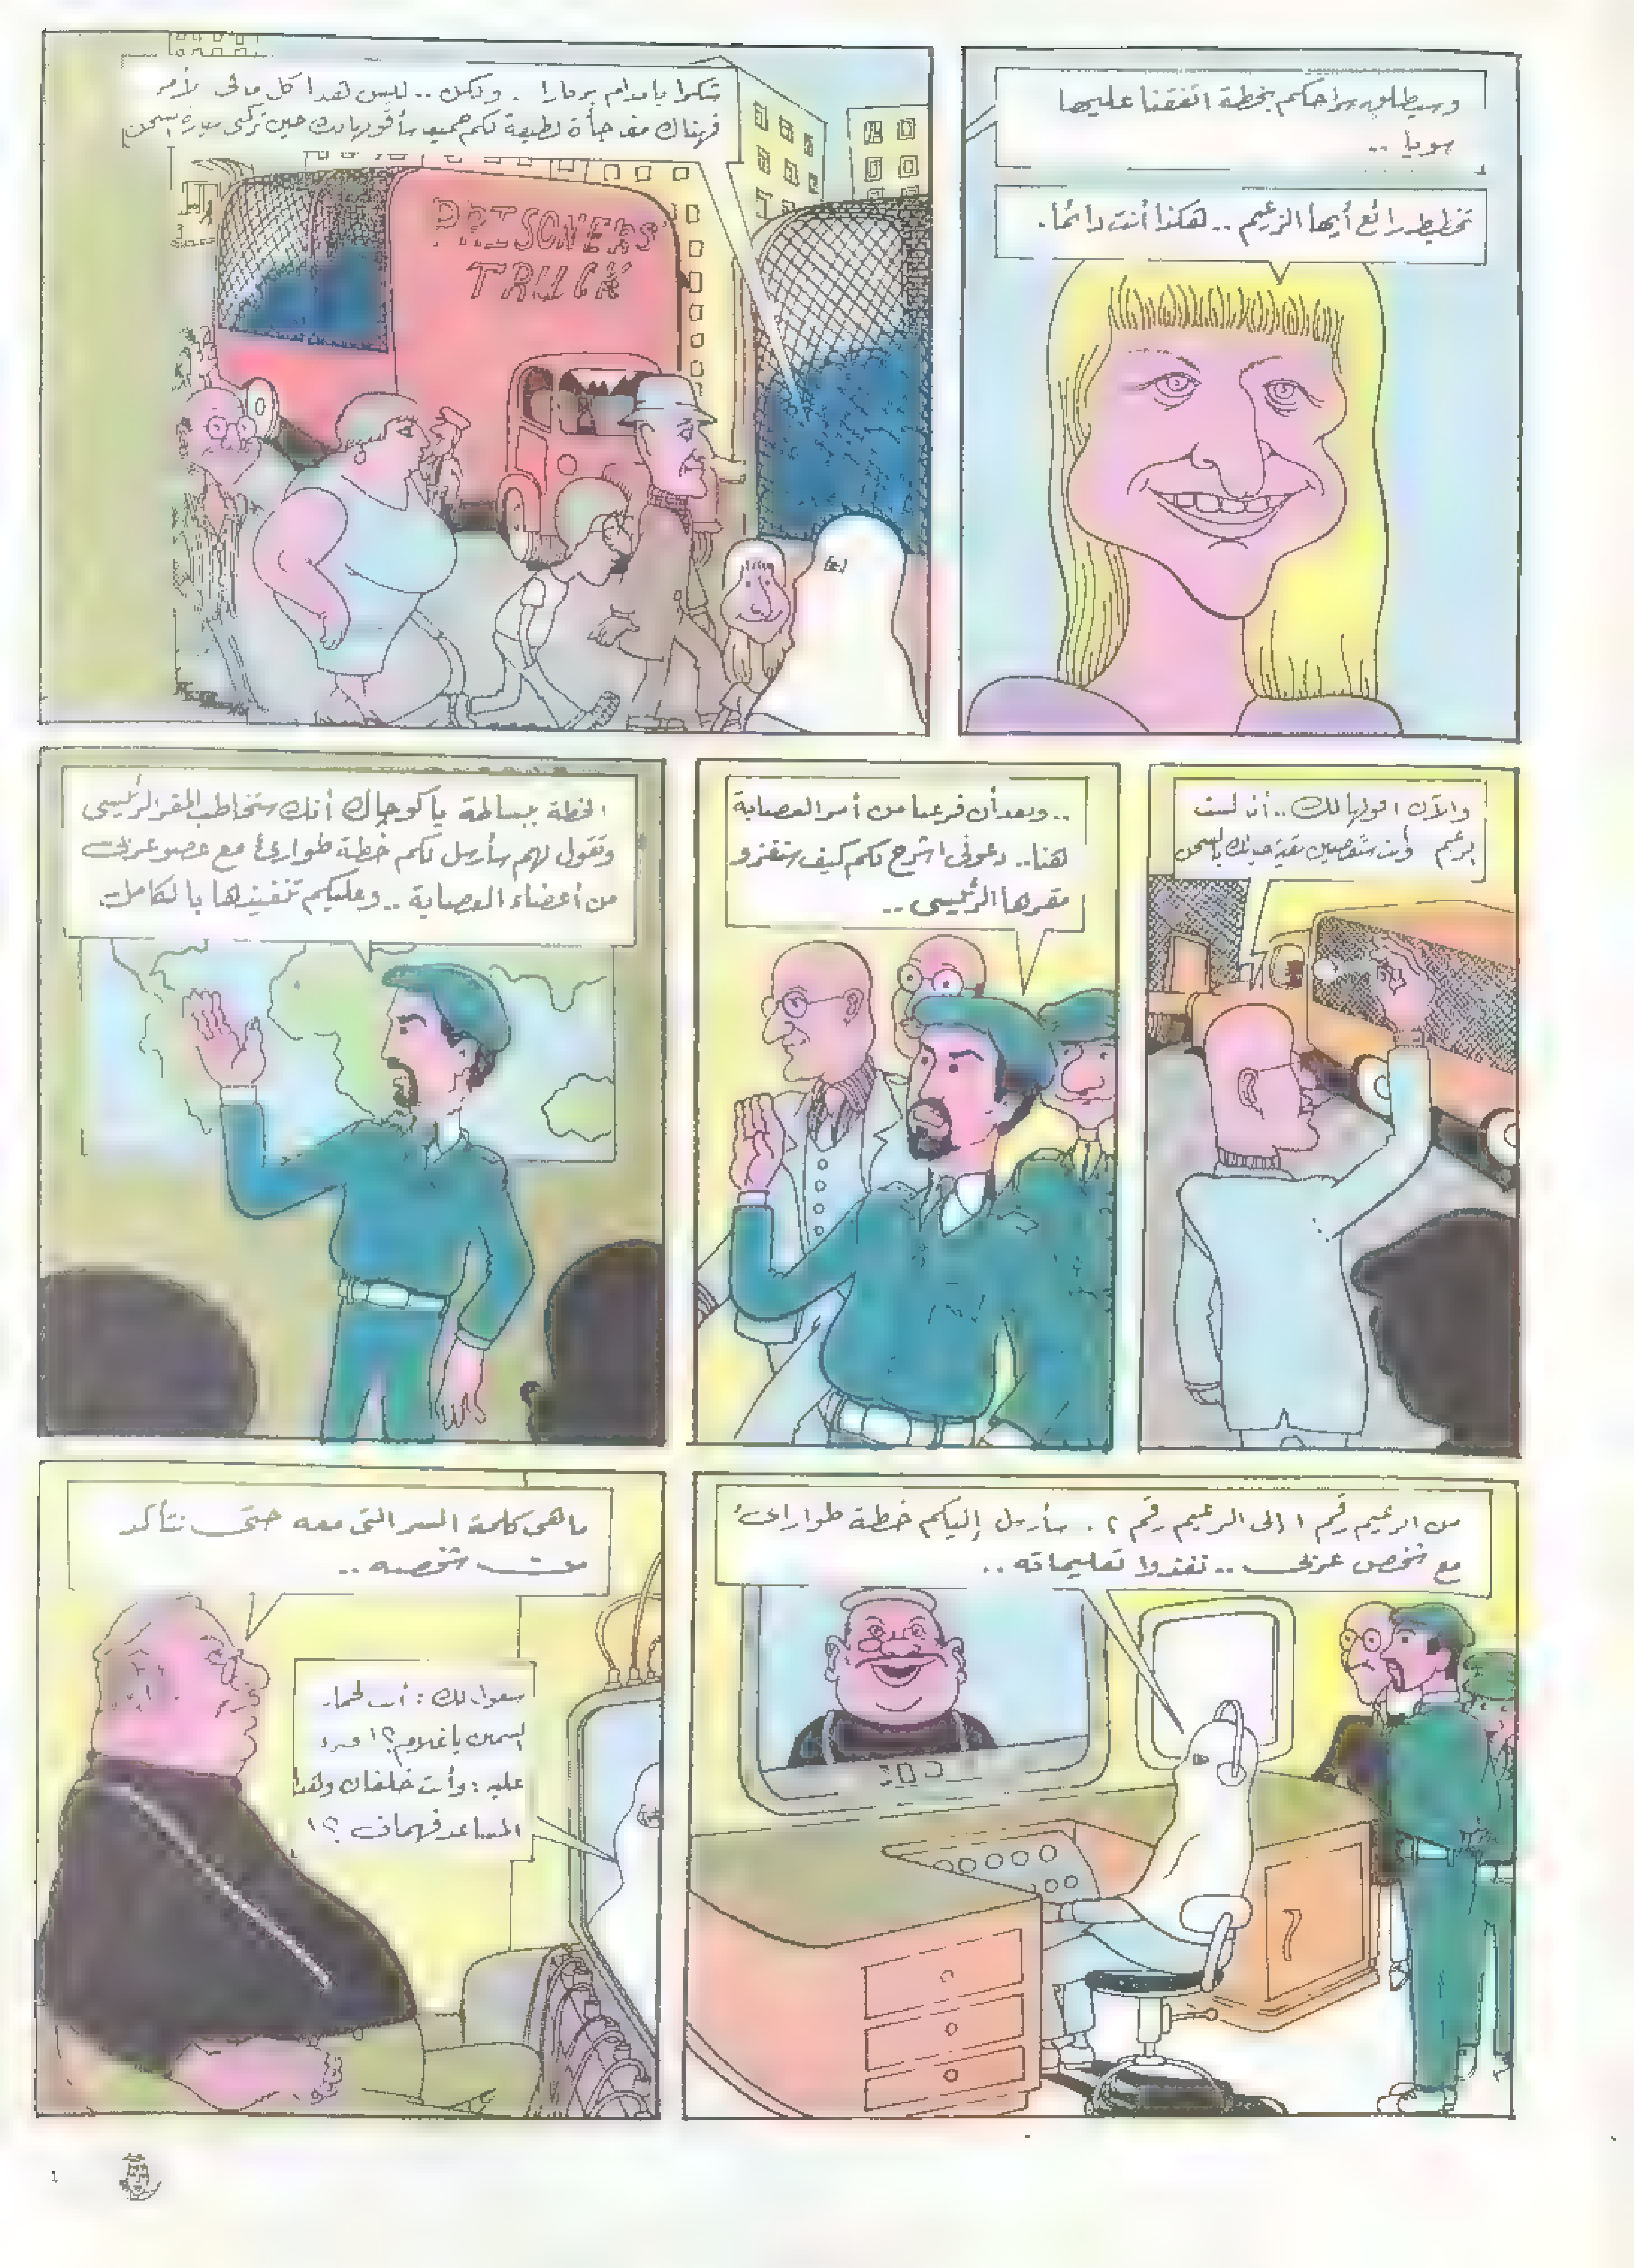 وسيطلق سراحكم بخطة اتفقنا عليها
سويا ..
تخطيط رائع أيها الزعيم .. هكذا أنت دائماً.
شكرا يا مدام بربارا . ولكن .. ليس هذا كل ما فى الأمر
فهناك مفاجأة لطيفة لكم جميعا سأقولها لك حين تركبى سيارة السجن
PRISONERS'
TRUCK
والآن اقولها لك .. أنا لست
بزعيم وأنت ستقضين بقية حياتك بالسجن
.. وبعد أن فرغنا من أمر العصابة
هنا .. دعونى اشرح لكم كيف سنغزو
مقرها الرئيسى ..
الخطة ببساطة يا كوجاك أنك ستخاطب المقر الرئيسى
وتقول لهم سأرسل لكم خطة طوارئ مع عضو عربى
من أعضاء العصابة .. وعليكم تنفيذها بالكامل
من الزعيم رقم ١ الى الزعيم رقم ٢ . سأرسل إليكم خطة طوارئ
مع شخص عربى .. نفذوا تعليماته ..
ما هى كلمة السر التى معه حتى نتأكد
من شخصه ..
سيقول لك : أنت
السمين يا غلام ؟!
عليه : وأنت خلفان وهذا
المساعد فهمان ؟!
1